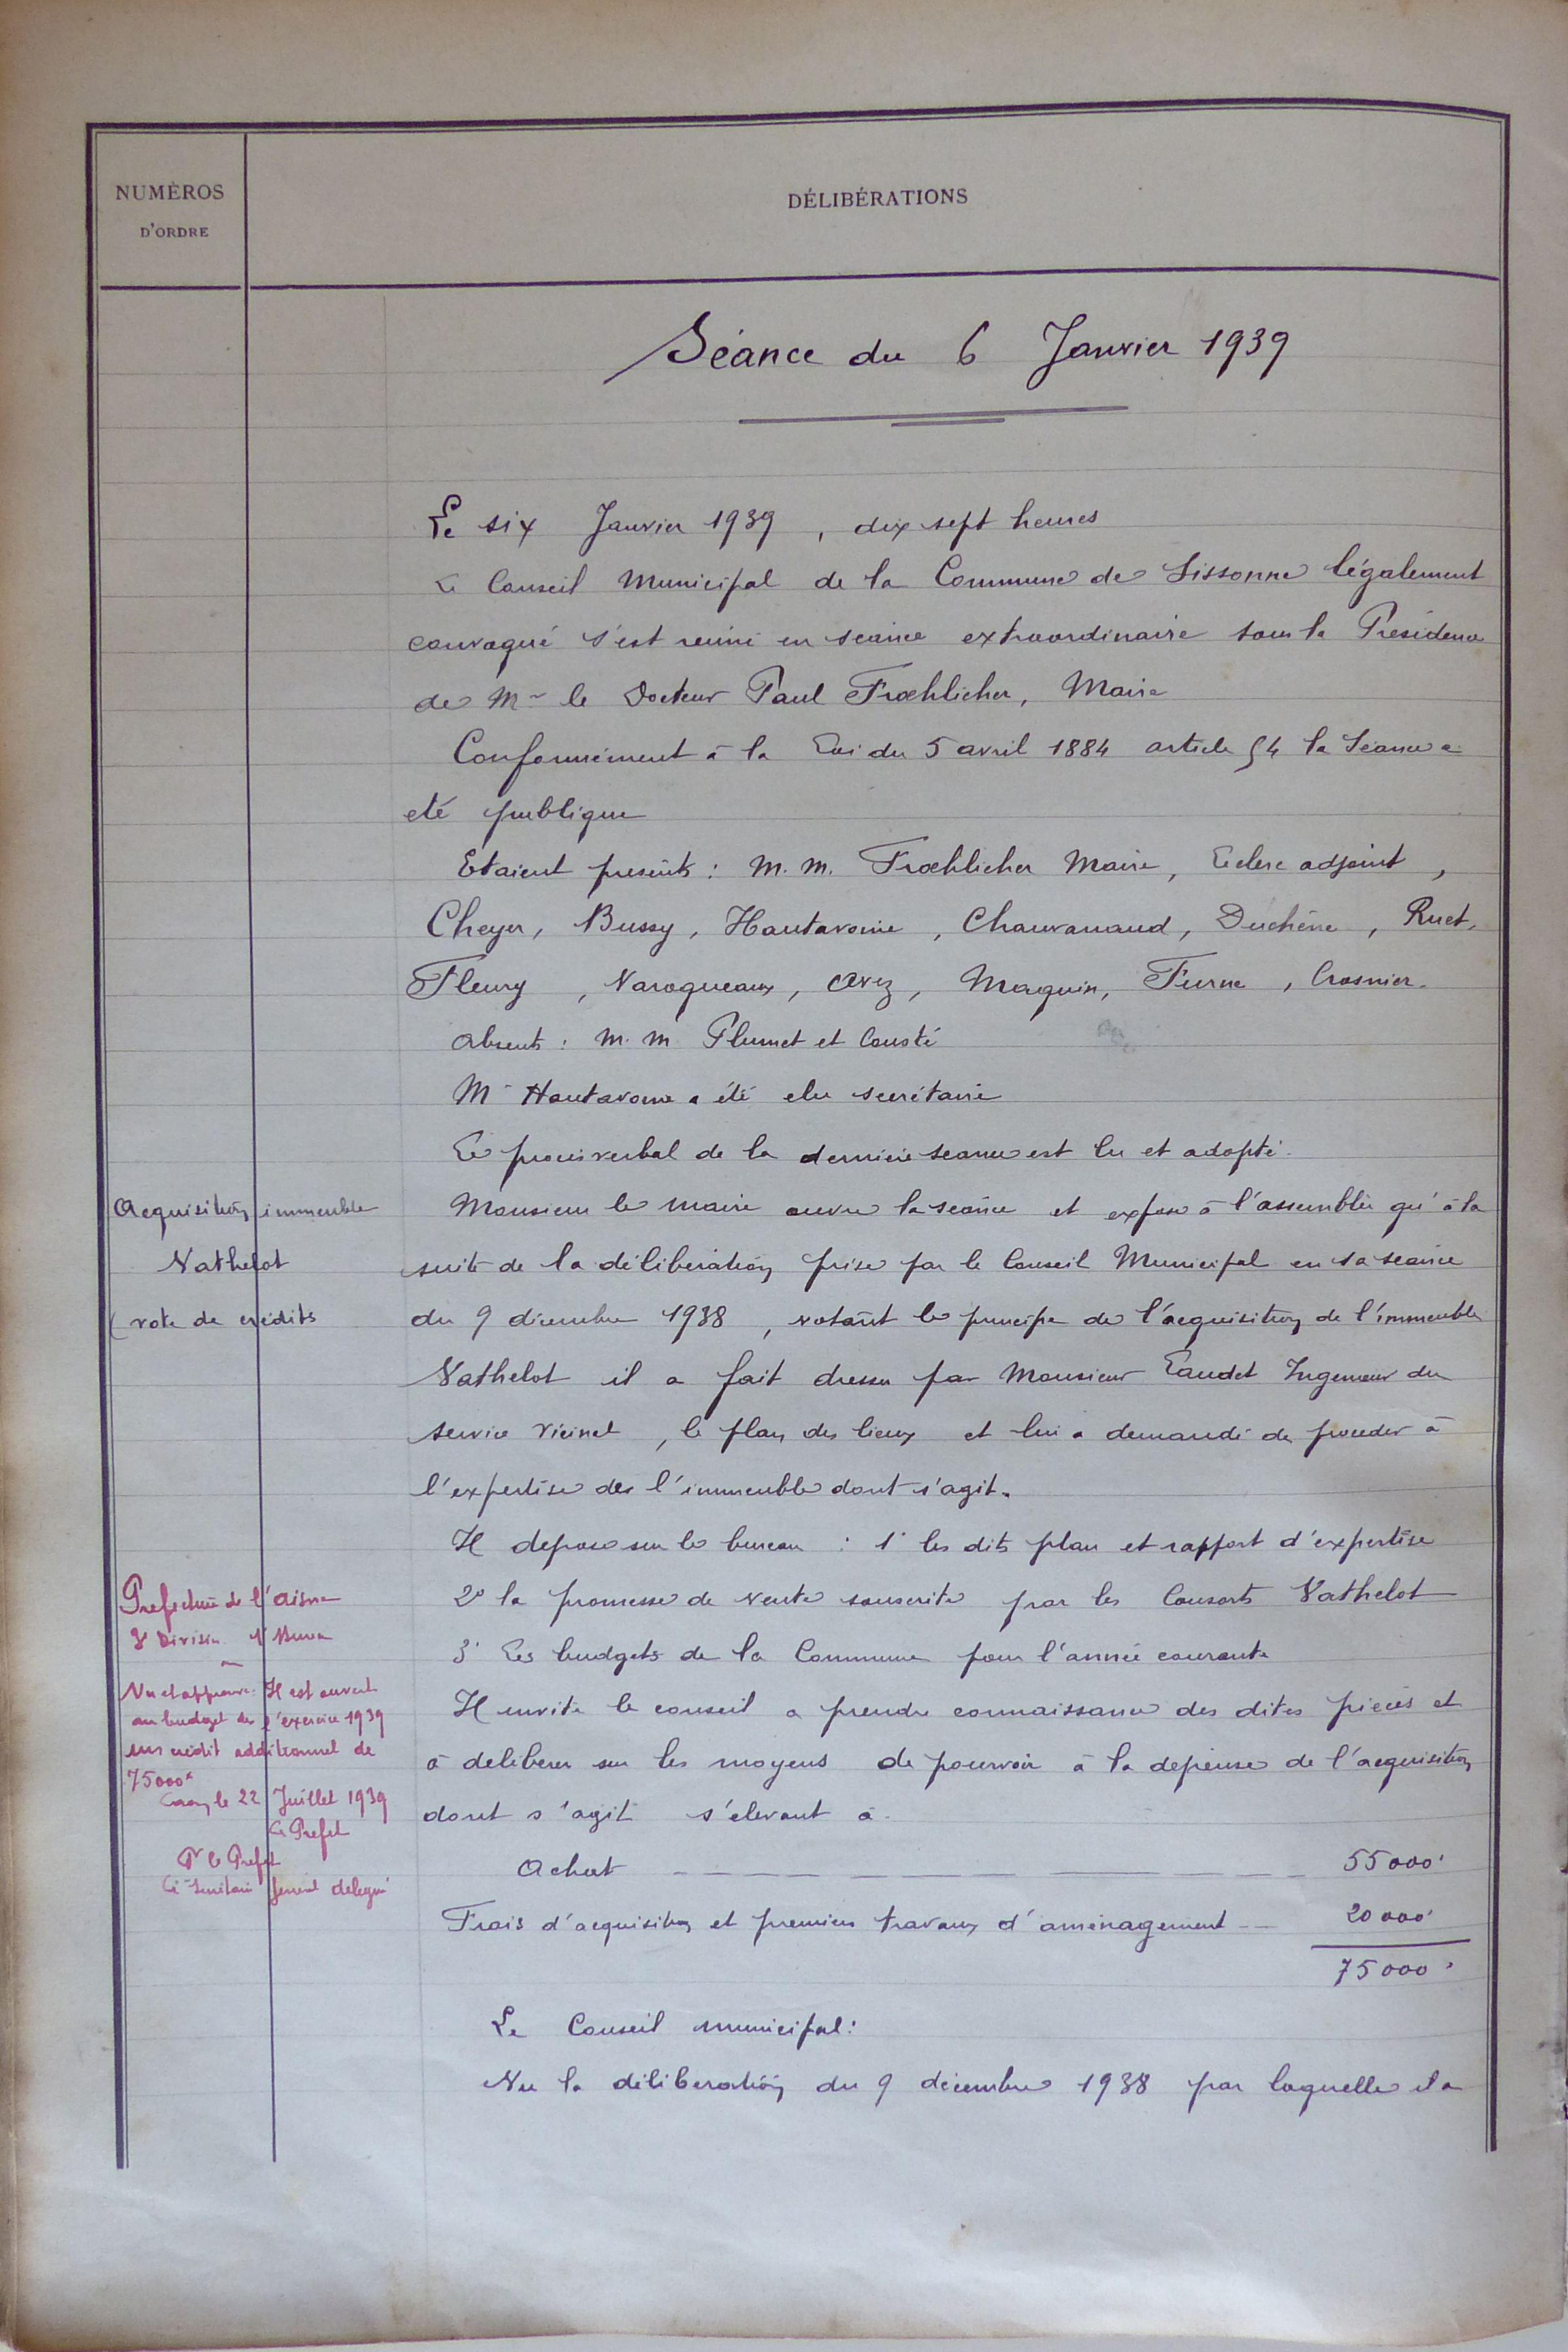 NUMÉROS
D'ORDRE
DÉLIBÉRATIONS
Séance du 6 Janvier 1939
Le six Janvier 1939, dix sept heures
Le Conseil Municipal de la Commune de Sissonne légalement
convoqué s'est reuni en seance extraordinaire sous la Présidence
de Mr le Docteur Paul Froehlicher, Maire
Conformément à la Loi du 5 avril 1884 article 54 la Séance a
eté publique
Etaient présents : M. M. Froehlicher Maire, Leclerc adjoint,
Cheyer, Bussy, Hautavoine, Chauvanaud, Duchêne, Ruet,
Fleury, Varoqueaux, Avez, Maquin, Furne, Crosnier.
Absents : M. M. Plumet et Cousté
Mr Hautavoine a été elu secrétaire
Le procès verbal de la dernière seance est lu et adopté.
Acquisition immeuble
Vathelot
(vote de crédits
Monsieur le maire ouvre la séance et expose à l'assemblée qu'à la
suite de la délibération prise par le Conseil Municipal en sa séance
du 9 décembre 1938, votant le principe de l'acquisition de l'immeuble
Vathelot il a fait dresser par Monsieur Laudet Ingenieur du
service vicinal, le plan des lieux et lui a demandé de proceder à
l'expertise de l'immeuble dont s'agit.
Il depose sur le bureau : 1° les dits plan et rapport d'expertise
2° la promesse de vente souscrite par les Consorts Vathelot
3° Les budgets de la Commune pour l'année courante
Il invite le conseil a prendre connaissance des dites pièces et
à deliberer sur les moyens de pourvoir à la depense de l'acquisition
dont s'agit s'elevant à
Achat 55000'
Frais d'acquisition et premiers travaux d'aménagement 20000'
75000'
Préfecture de l'Aisne
3e Division 1r Bureau
Vu et approuvé. Il est ouvert
au budget de l'exercice 1939
un crédit additionnel de
75000f
Laon, le 22 Juillet 1939
Le Prefet
Pr le Prefet
Le Secrétaire général délégué
Le Conseil municipal:
Vu la délibération du 9 décembre 1938 par laquelle il a